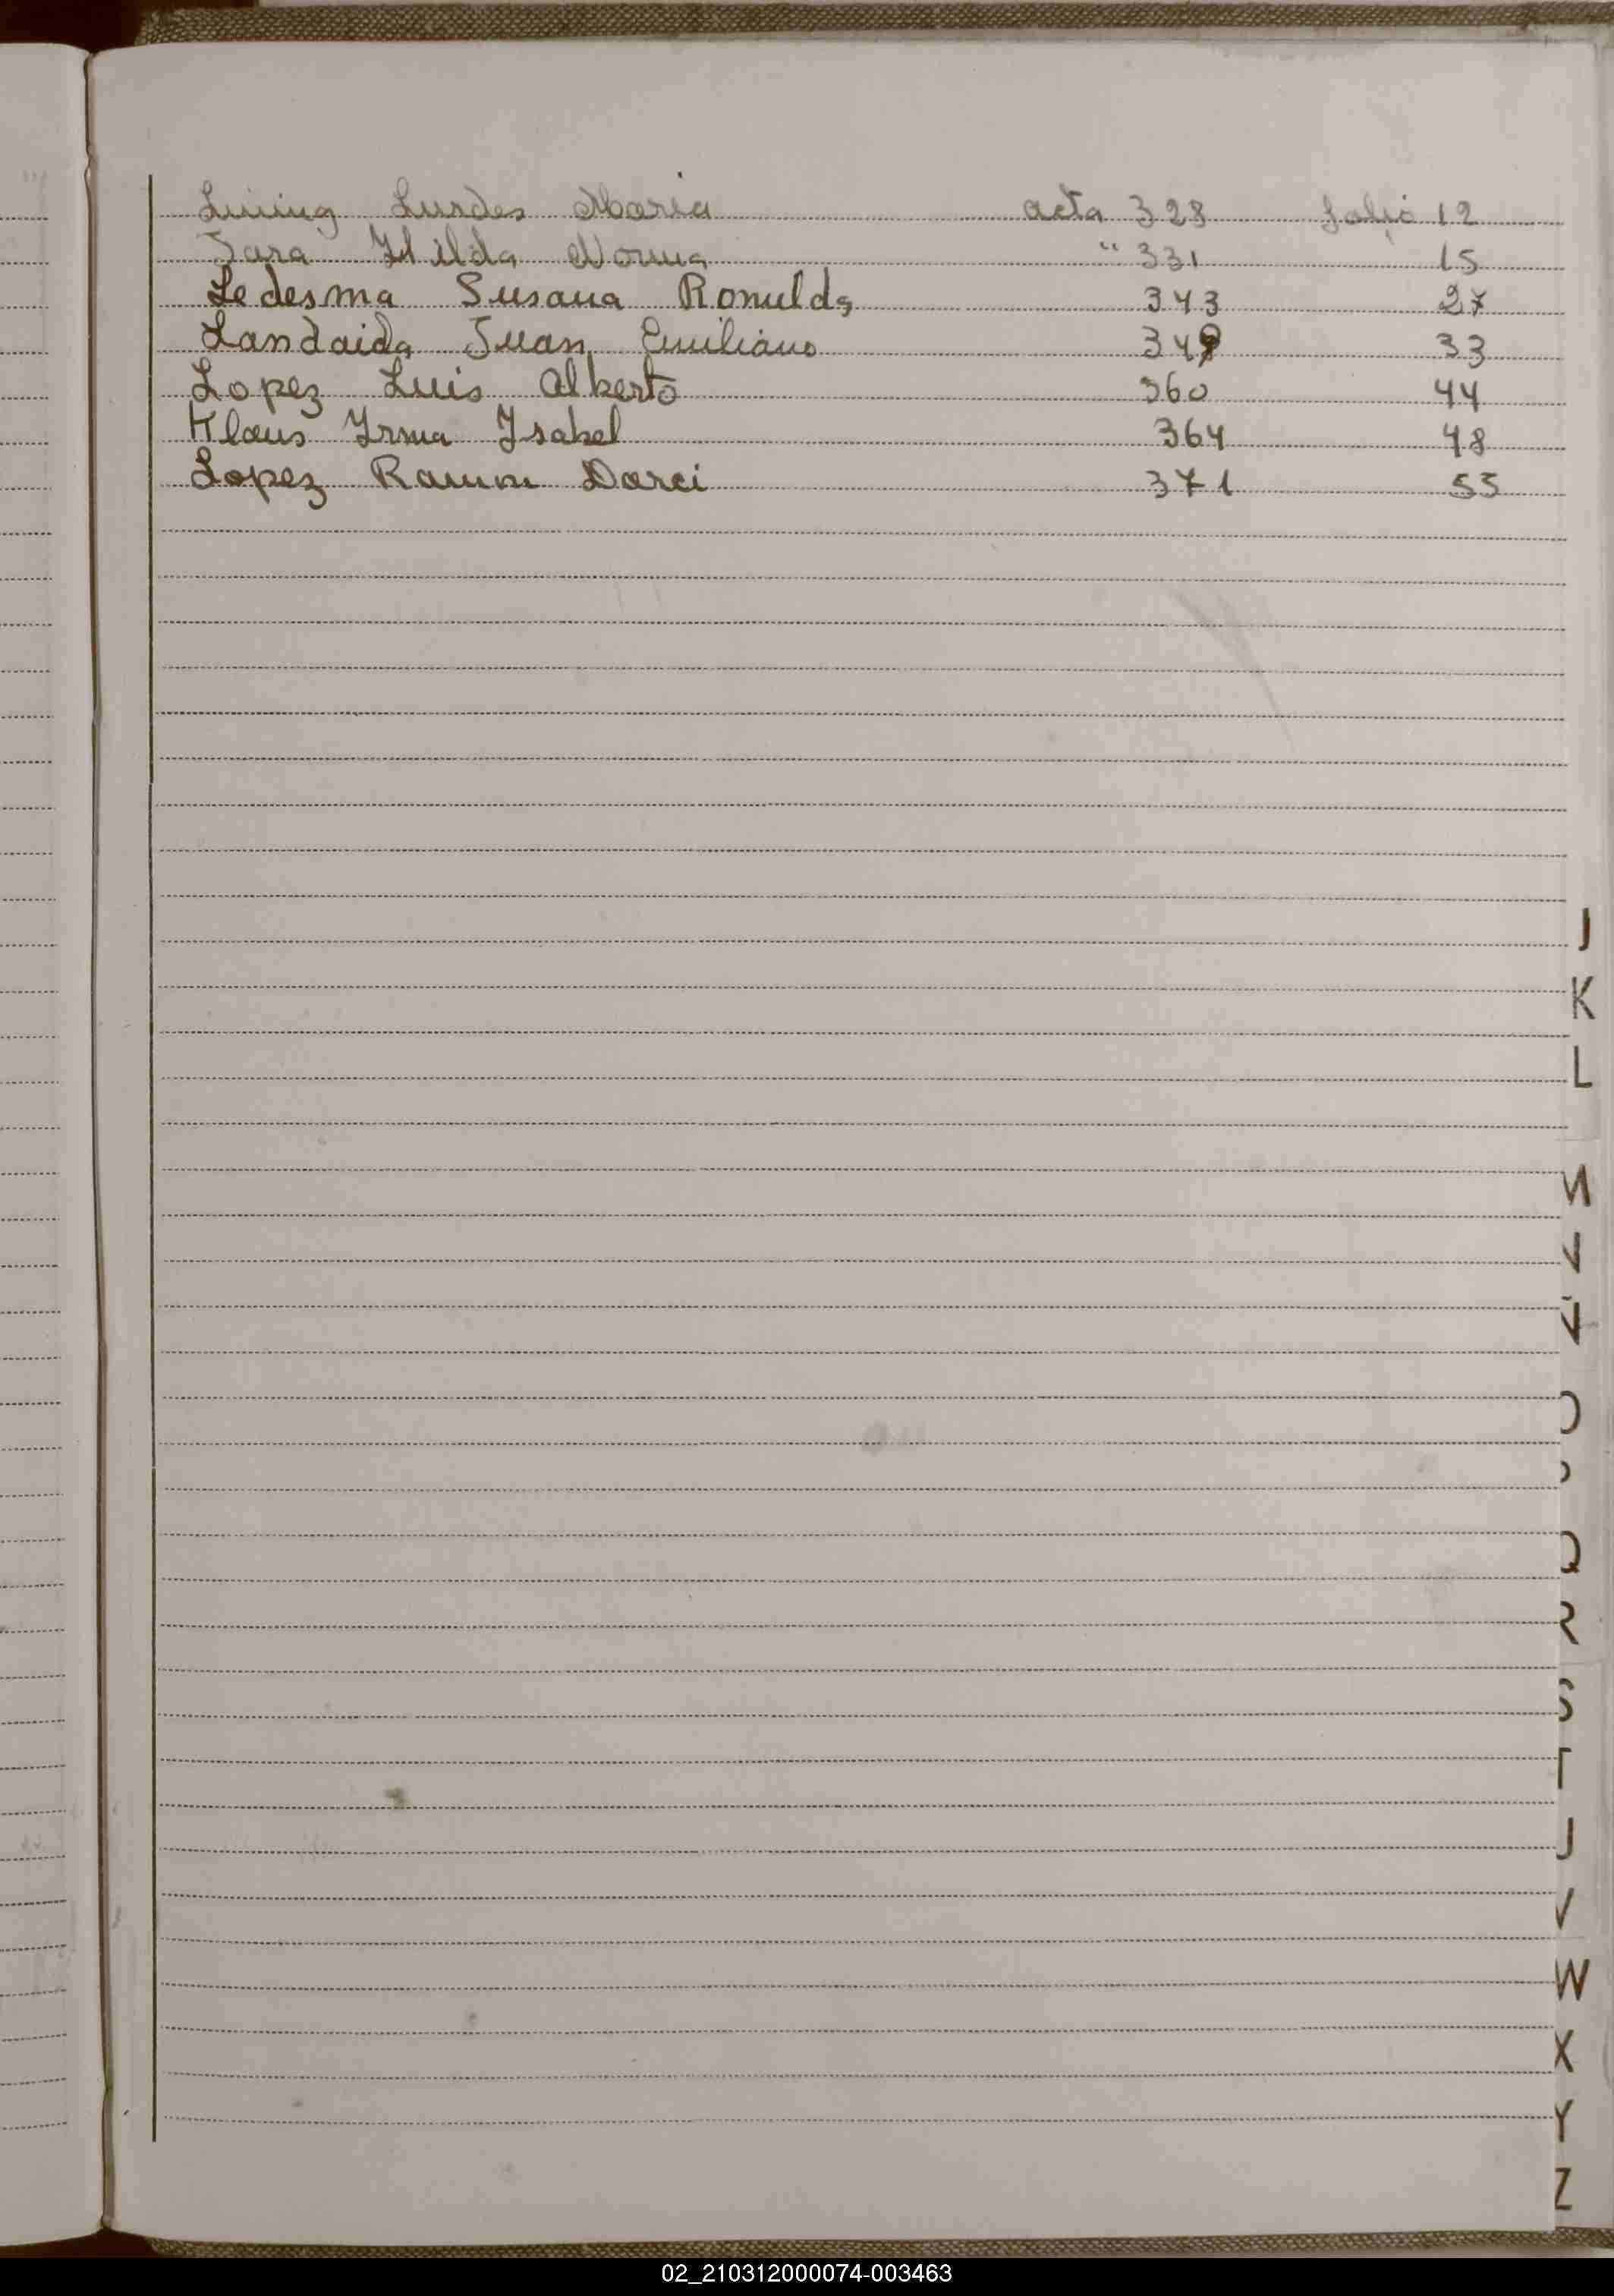 Lurdes Maria acta 328 folio 12
Jara Hilda Norma " 331 15
Ledesma Susana Romulda 343 27
Landaida Juan Emiliano 349 33
Lopez Luis Alberto 360 44
Klaus Yrma Ysabel 364 48
Lopez Ramon Darci 371 55
J
K
L
M
N
Ñ
O
P
Q
R
S
T
U
V
W
X
Y
Z
02_210312000074-003463